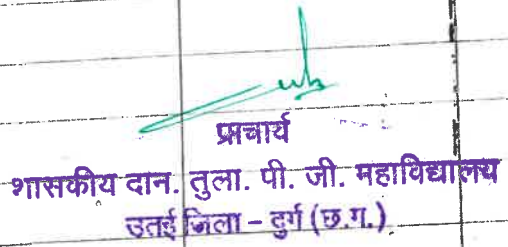 प्राचार्य
शासकीय दान. तुला. पी. जी. महाविद्यालय
उतई जिला - दुर्ग (छ.ग.)